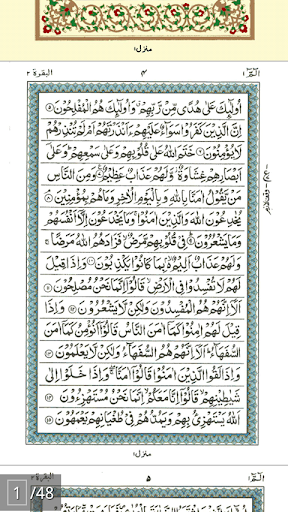 منزل ١
البقرة ٢
۴
الٓمّٓ ١
اُولٰٓئِكَ عَلٰى هُدًى مِّنْ رَّبِّهِمْ وَاُولٰٓئِكَ هُمُ الْمُفْلِحُوْنَ ۵
اِنَّ الَّذِيْنَ كَفَرُوْا سَوَآءٌ عَلَيْهِمْ ءَاَنْذَرْتَهُمْ اَمْ لَمْ تُنْذِرْهُمْ
لَا يُؤْمِنُوْنَ ۶ خَتَمَ اللّٰهُ عَلٰى قُلُوْبِهِمْ وَعَلٰى سَمْعِهِمْ وَعَلٰٓى
اَبْصَارِهِمْ غِشَاوَةٌ وَّلَهُمْ عَذَابٌ عَظِيْمٌ ۷ وَمِنَ النَّاسِ
مَنْ يَّقُوْلُ اٰمَنَّا بِاللّٰهِ وَبِالْيَوْمِ الْاٰخِرِ وَمَا هُمْ بِمُؤْمِنِيْنَ ۸
يُخٰدِعُوْنَ اللّٰهَ وَالَّذِيْنَ اٰمَنُوْا وَمَا يَخْدَعُوْنَ اِلَّآ اَنْفُسَهُمْ
وَمَا يَشْعُرُوْنَ ۹ فِيْ قُلُوْبِهِمْ مَّرَضٌ فَزَادَهُمُ اللّٰهُ مَرَضًا
وَلَهُمْ عَذَابٌ اَلِيْمٌ بِمَا كَانُوْا يَكْذِبُوْنَ ۱۰ وَاِذَا قِيْلَ
لَهُمْ لَا تُفْسِدُوْا فِي الْاَرْضِ قَالُوْٓا اِنَّمَا نَحْنُ مُصْلِحُوْنَ ۱۱
اَلَآ اِنَّهُمْ هُمُ الْمُفْسِدُوْنَ وَلٰكِنْ لَّا يَشْعُرُوْنَ ۱۲ وَاِذَا
قِيْلَ لَهُمْ اٰمِنُوْا كَمَآ اٰمَنَ النَّاسُ قَالُوْٓا اَنُؤْمِنُ كَمَآ اٰمَنَ
السُّفَهَآءُ اَلَآ اِنَّهُمْ هُمُ السُّفَهَآءُ وَلٰكِنْ لَّا يَعْلَمُوْنَ ۱۳
وَاِذَا لَقُوا الَّذِيْنَ اٰمَنُوْا قَالُوْٓا اٰمَنَّا وَاِذَا خَلَوْا اِلٰى
شَيٰطِيْنِهِمْ قَالُوْٓا اِنَّا مَعَكُمْ اِنَّمَا نَحْنُ مُسْتَهْزِءُوْنَ ۱۴
اَللّٰهُ يَسْتَهْزِئُ بِهِمْ وَيَمُدُّهُمْ فِيْ طُغْيَانِهِمْ يَعْمَهُوْنَ ۱۵
منزل ١
البقرة ٢
۵
الٓمّٓ ١
1 /48